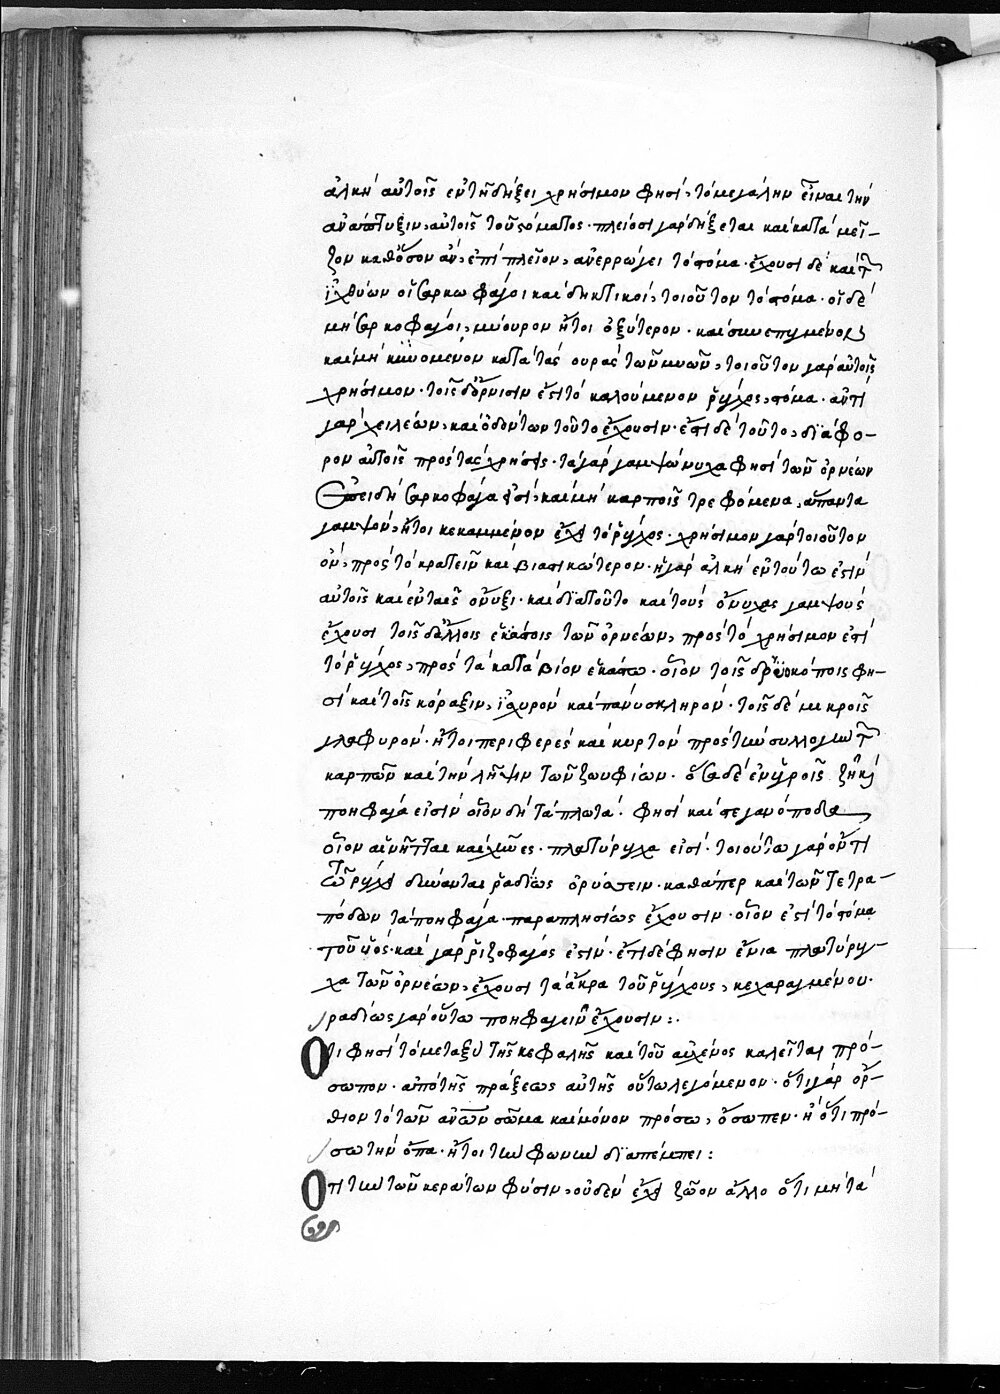 ἀλκὴ αὐτοῖς ἐν τῇ δήξει χρήσιμον φησὶ, τὸ μεγάλην εἶναι τὴν
ἀνάπτυξιν αὐτοῖς τοῦ στόματος· πλείοσι γὰρ δήξεται καὶ κατὰ μεῖ-
ζον καθ' ὅσον ἂν, ἐπὶ πλεῖον, ἀνερρώγει τὸ στόμα· ἔχουσι δὲ καὶ τῶν
ἰχθύων οἱ σαρκοφάγοι καὶ δηκτικοὶ, τοιοῦτον τὸ στόμα· οἱ δὲ
μὴ σαρκοφάγοι, μύουρον ἤτοι ὀξύτερον· καὶ συνεπτυγμένον
καὶ μὴ κατὰ τὰς οὐρὰς τῶν μυῶν, τοιοῦτον γὰρ αὐτοῖς
χρήσιμον· τοῖς δ' ὄρνισιν ἐστὶ τὸ καλούμενον ῥύγχος, στόμα· ἀντὶ
γὰρ χειλέων, καὶ ὀδόντων τοῦτο ἔχουσιν· ἔτι δὲ τοῦτο, διάφο-
ρον αὐτοῖς πρὸς τὰς χρήσεις· τὰ γὰρ γαμψώνυχα φησὶ τῶν ὀρνέων
ἐπειδὴ σαρκοφάγα ἐστὶ, καὶ μὴ καρποῖς τρεφόμενα, ἅπαντα
γαμψὸν, ἤτοι κεκαμμένον ἔχει τὸ ῥύγχος· χρήσιμον γὰρ τοιοῦτον
ὂν, πρὸς τὸ κρατεῖν καὶ βιαστικώτερον· ἡ γὰρ ἀλκὴ ἐν τούτω ἐστὶν
αὐτοῖς καὶ ἐν ταῖς ὄνυξι· καὶ διατοῦτο καὶ τοὺς ὄνυχας γαμψοὺς
ἔχουσι τοῖς δ' ἄλλοις ἑκάστοις τῶν ὀρνέων, πρὸς τὸ χρήσιμον ἐστὶ
τὸ ῥύγχος, πρὸς τὰ κατὰ βίον ἑκάστω· οἷον τοῖς δρυοκόποις φη-
σὶ καὶ τοῖς κόραξιν, ἰσχυρὸν καὶ πάνυ σκληρόν· τοῖς δὲ μικροῖς
γλαφυρόν· ἤτοι περιφερὲς καὶ κυρτὸν πρὸς τὴν συλλογὴν τῶν
καρπῶν καὶ τὴν λῆψιν τῶν ζωυφίων· ὅσα δὲ ἐν ὑγροῖς ζῆ καὶ
ποηφάγα εἰσὶν οἷον δὴ τὰ πλωτά· φησὶ καὶ στεγανόποδα
οἷον αἱ νῆτται καὶ χῆνες· πλατύρυγχα εἰσί· τοιούτω γὰρ ὄντι
τῶ ῥύγχει δύνανται ῥαδίως ὀρύττειν· καθάπερ καὶ τῶν τετρα-
πόδων τὰ ποηφάγα· παραπλησίως ἔχουσιν· οἷον ἐστὶ τὸ στόμα
τοῦ ὑός· καὶ γὰρ ῥιζοφάγος ἐστίν· ἔτι δὲ φησιν ἔνια πλατύρυγ-
χα τῶν ὀρνέων, ἔχουσι τὰ ἄκρα τοῦ ῥύγχους, κεχαραγμένου·
ῥαδίως γὰρ οὕτω ποηφαγεῖν ἔχουσιν:.
Ὅτι φησὶ τὸ μεταξὺ τῆς κεφαλῆς καὶ τοῦ αὐχένος καλεῖται πρό-
σωπον· ἀπὸ τῆς πράξεως αὐτῆς οὕτω λεγόμενον· ὅτι γὰρ ὄρ-
θιον τὸ τῶν ἀνων σῶμα καὶ μόνον πρόσω, ὄσωπεν· ἢ ὅτι πρό-
σω τὴν ὄπα· ἤτοι τὴν φωνὴν διαπέμπει:
Ὅτι τὴν τῶν κεράτων φύσιν, οὐδὲν ἔχει ζῶον ἄλλο ὅτι μὴ τὰ